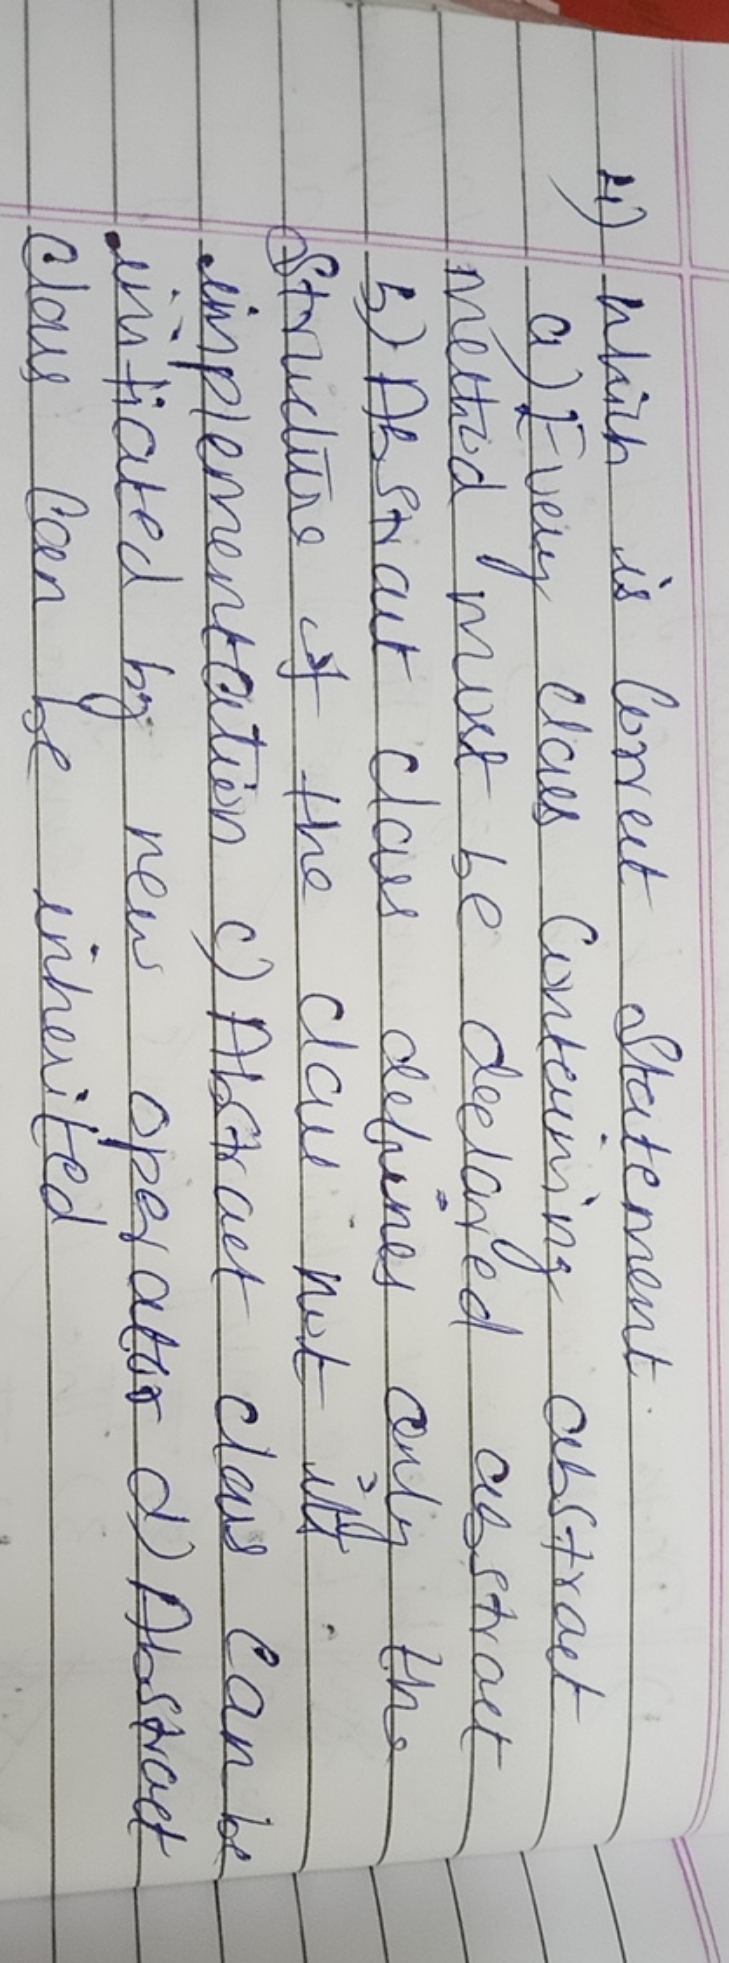 4) which is Correct Statement
a) Every class Containing abstract
method must be declared abstract
b) Abstract class defines only the
Structure of the class not it's
implementation c) Abstract class can be
initiated by new operator d) Abstract
class Can be inherited